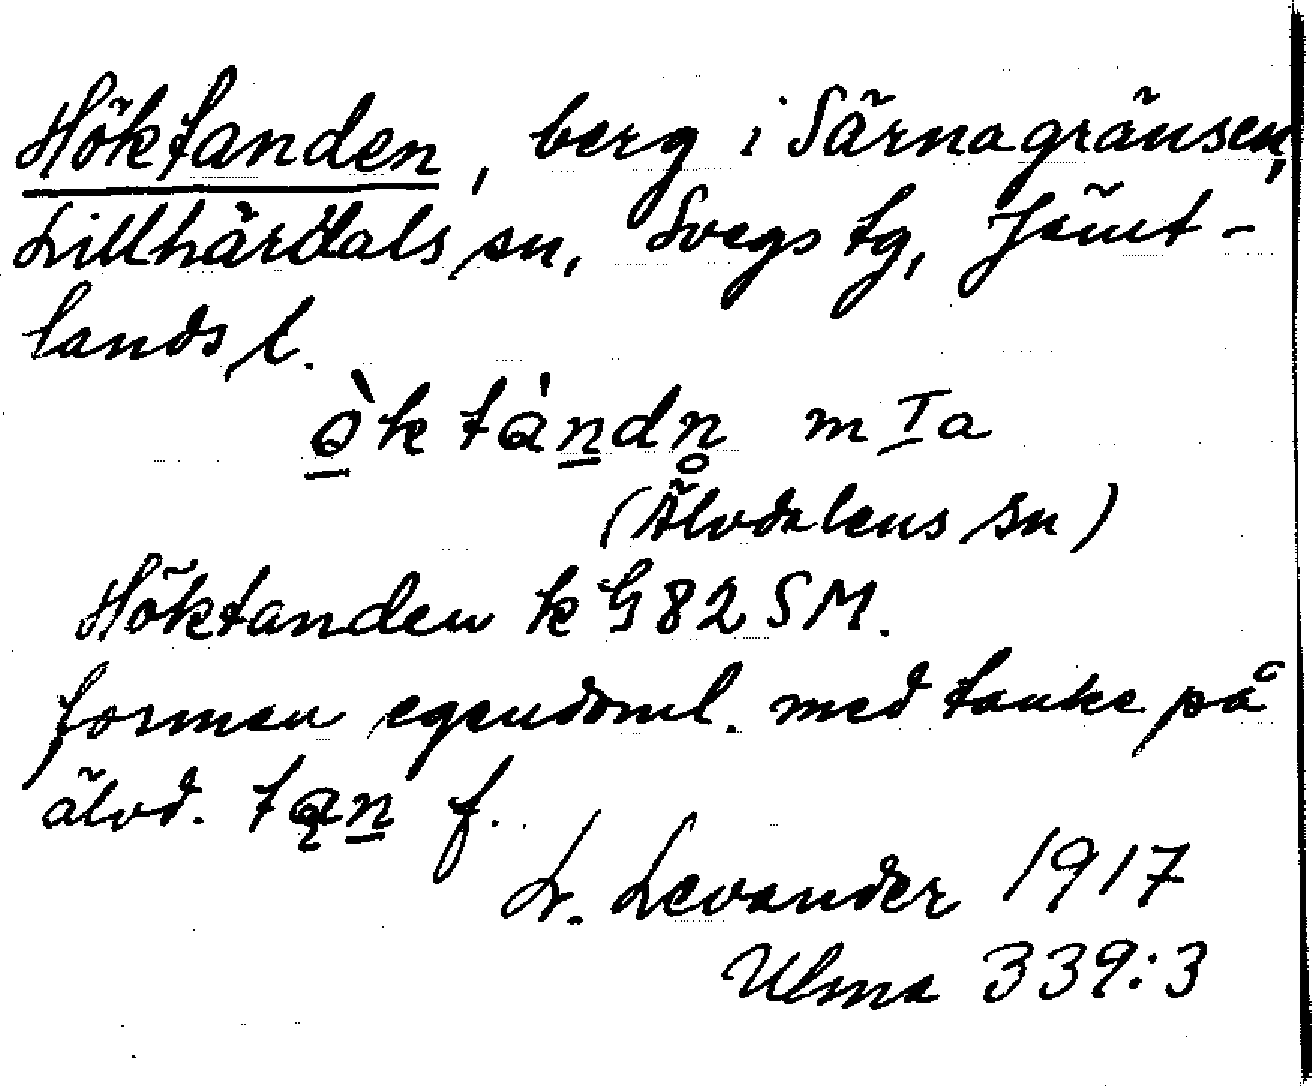 Höktanden, berg i Särnagränsen,
Lillhärdals sn, Svegs tg, Jämt-
lands l.
ò̲k tàn̲dn̥ m I a
(Älvdalens sn)
Höktanden k G 82 SM.
formen egendoml. med tanke på
älvd. tąn̲ f.
L. Levander 1917
Ulma 339:3